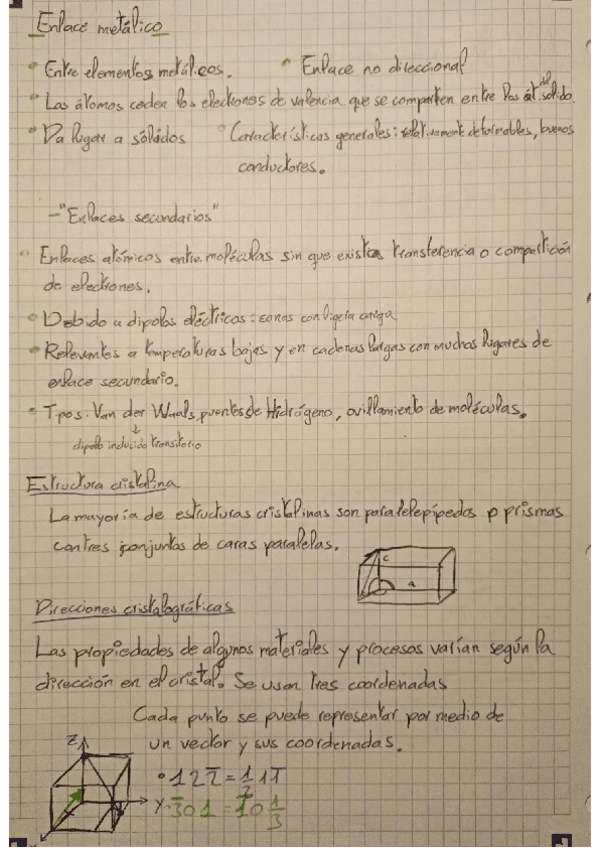 Enlace metálico
• Entre elementos metálicos. • Enlace no direccional
• Los átomos ceden los electrones de valencia que se comparten entre los át. del sólido.
• Da lugar a sólidos • Características generales: relativamente deformables, buenos
conductores.
- "Enlaces secundarios"
• Enlaces atómicos entre moléculas sin que exista transferencia o compartición
de electrones.
• Debido a dipolos eléctricos: zonas con ligera carga
• Relevantes a temperaturas bajas y en cadenas largas con muchos lugares de
enlace secundario.
• Tipos: Van der Waals, puentes de Hidrógeno, ovillamiento de moléculas.
↓
dipolo inducido transitorio
Estructura cristalina
La mayoría de estructuras cristalinas son paralelepípedos o prismas
con tres conjuntos de caras paralelas.
c
a
Direcciones cristalográficas
Las propiedades de algunos materiales y procesos varían según la
dirección en el cristal. Se usan tres coordenadas
Cada punto se puede representar por medio de
un vector y sus coordenadas.
Z
• 1 2 2̅ = 1/2 1 1̅
Y • 3̅ 0 1 = 1̅ 0 1/3